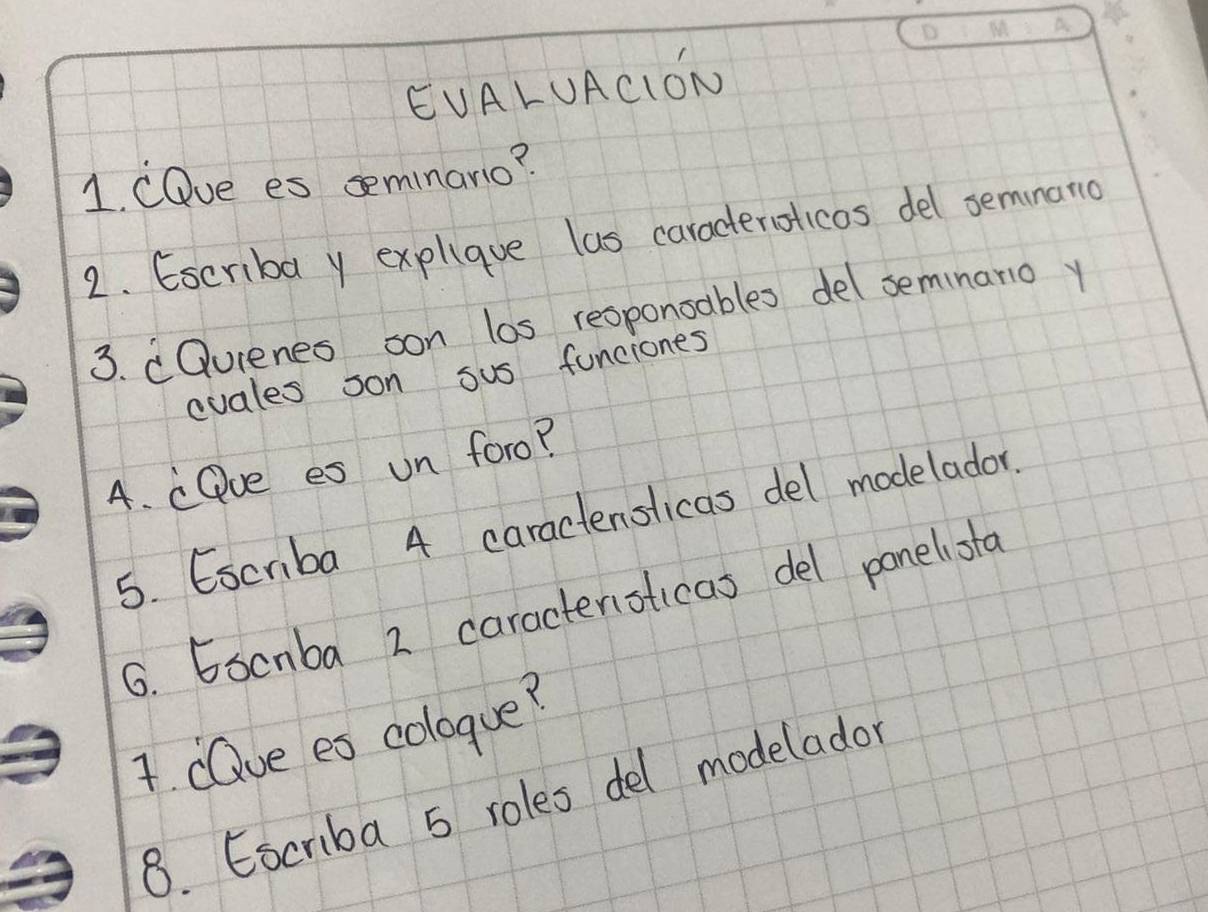 D M A
EVALUACIÓN
1. ¿Que es seminario?
2. Escriba y explique las caracteristicas del seminario
3. ¿Quienes son los responsables del seminario y
cuales son sus funciones
4. ¿Que es un foro?
5. Escriba 4 caracteristicas del modelador.
6. Escriba 2 caracteristicas del panelista
7. ¿Que es cologue?
8. Escriba 5 roles del modelador